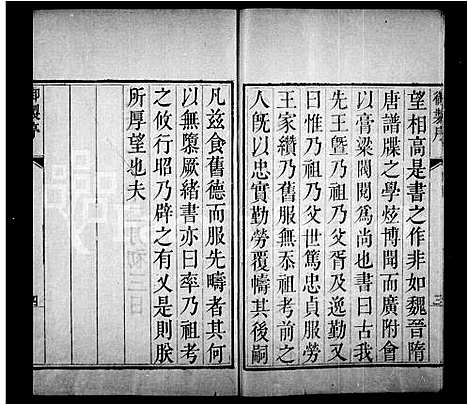 御製序
三
望相高是書之作非如魏晉隋
唐譜牒之學炫博聞而廣附會
以膏粱閥閱爲尚也書曰古我
先王曁乃祖乃父胥及逸勤又
曰惟乃祖乃父世篤忠貞服勞
王家纘乃舊服無忝祖考前
人旣以忠實勤勞覆幬其後嗣
凡茲食舊德而服先疇者其何
以無隳厥緒書亦曰率乃祖考
之攸行昭乃辟之有乂是則朕
所厚望也夫
御製序
四